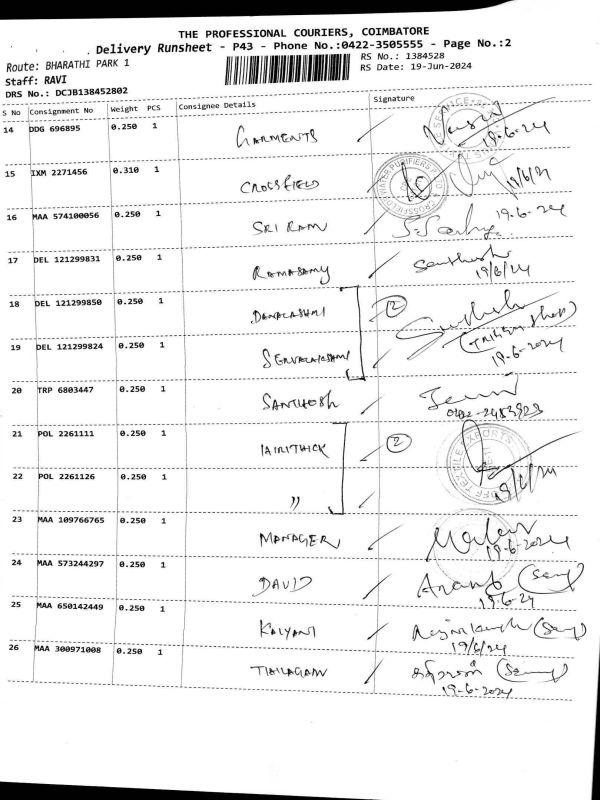 THE PROFESSIONAL COURIERS, COIMBATORE
Delivery Runsheet - P43 - Phone No.:0422-3505555 - Page No.:2
Route: BHARATHI PARK 1
RS No.: 1384528
Staff: RAVI
RS Date: 19-Jun-2024
DRS No.: DCJB138452802
S No Consignment No Weight PCS Consignee Details Signature
14 DDG 696895 0.250 1 GARMENTS
19-6-24
15 IXM 2271456 0.310 1 CROSSFIELD 19/6/24
16 MAA 574100056 0.250 1 SRI RAM 19-6-2024
17 DEL 121299831 0.250 1 RAMASAMY Santhosh
19/6/24
18 DEL 121299850 0.250 1 DANALASHMI 2
19 DEL 121299824 0.250 1
19-6-2024
20 TRP 6803447 0.250 1 SANTHOSH
0422-2483923
21 POL 2261111 0.250 1 2
22 POL 2261126 0.250 1 〃 19/6/24
23 MAA 109766765 0.250 1 MANAGER
19-6-2024
24 MAA 573244297 0.250 1 DAVID Anand
19-6-24
25 MAA 650142449 0.250 1 KALYANI
19/6/24
26 MAA 300971008 0.250 1 THILAGAM
19-6-2024